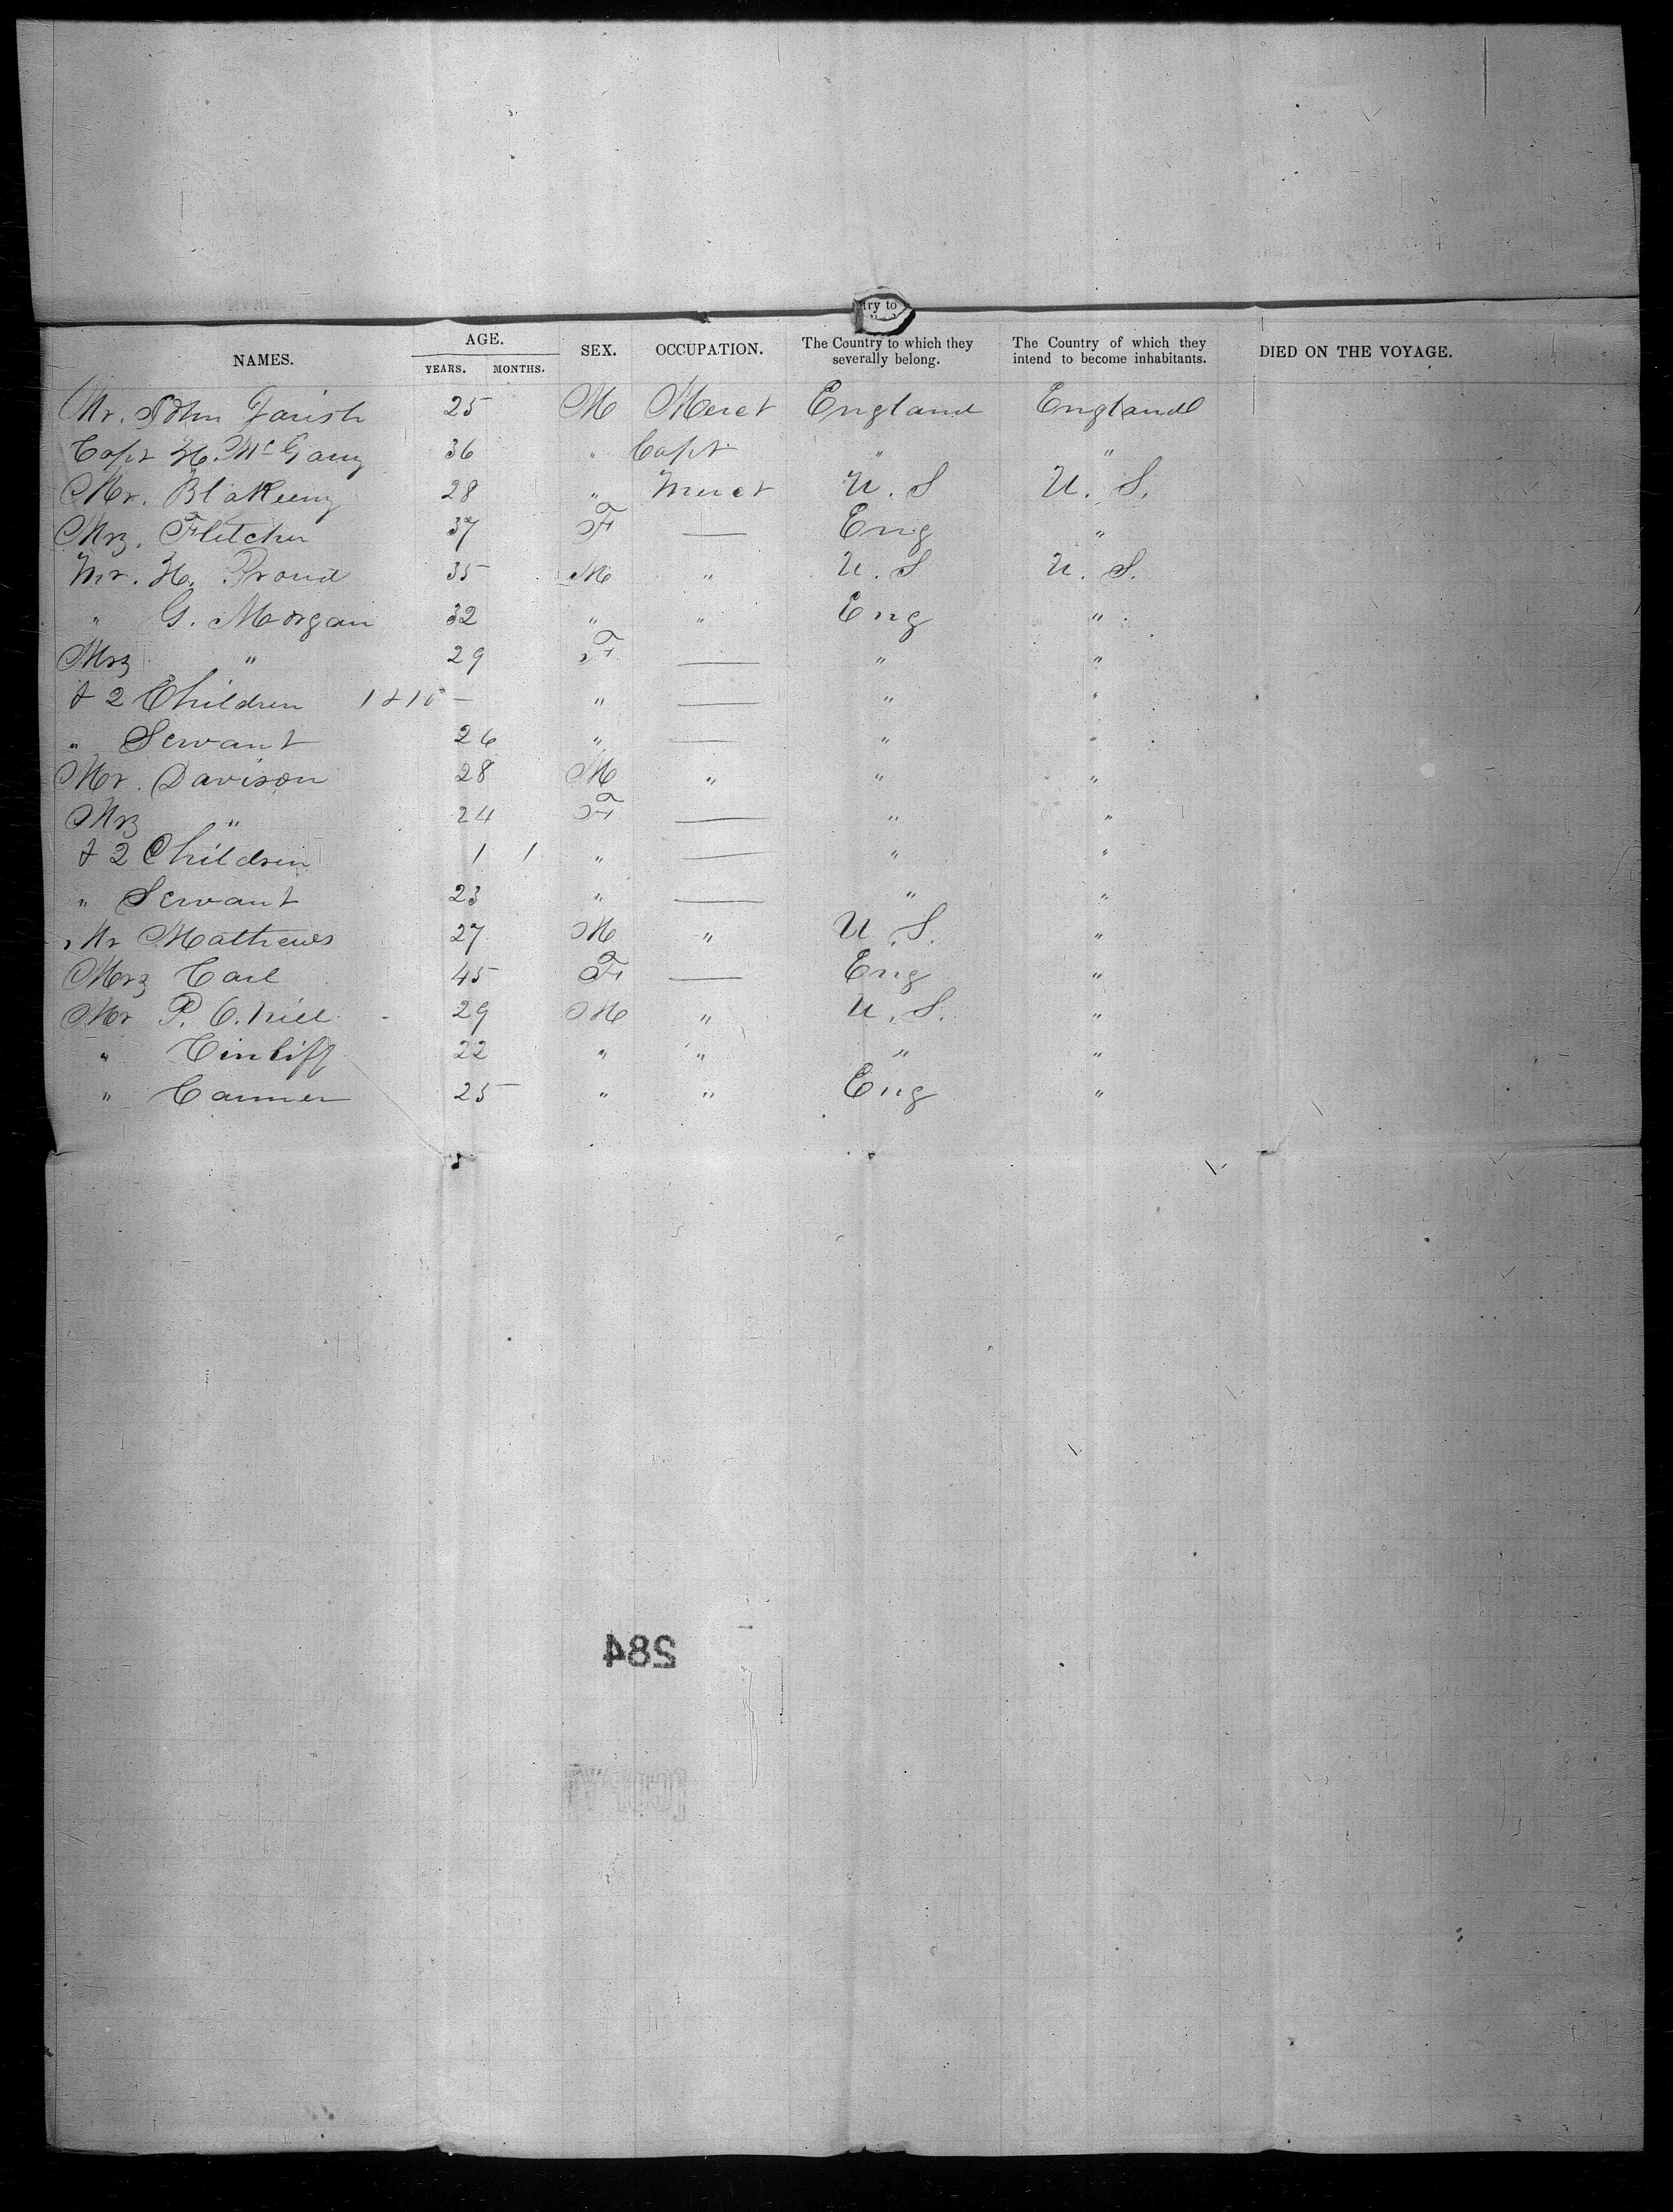 try to
NAMES. AGE. YEARS. MONTHS. SEX. OCCUPATION. The Country to which they severally belong. The Country of which they intend to become inhabitants. DIED ON THE VOYAGE.
Mr. John Farish 25 M Merct England England
Capt H. McGarry 36 " Capt " "
Mr. Blakeeny 28 " Merct U. S U. S.
Mrs. Fletcher 37 F — Eng "
Mr. H. Proud 35 M " U. S U. S.
" G. Morgan 32 " " Eng "
Mrs " 29 F — " "
& 2 Children 1 & 10 — " — " "
" Servant 26 " — " "
Mr. Davison 28 M " " "
Mrs " 24 F — " "
& 2 Children 1 1 " — " "
" Servant 23 " — " "
Mr Mathews 27 M " U. S. "
Mrs Carl 45 F — Eng "
Mr P. O. Niell 29 M " U. S. "
" 22 " " " "
" 25 " " Eng "
284